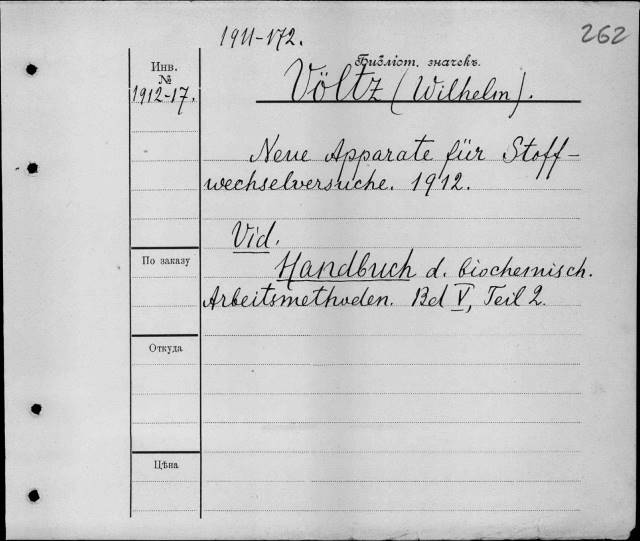 262
1911-172.
Библіот. значекъ.
Инв.
№
1912-17.
Völtz (Wilhelm).
Neue Apparate für Stoff-
wechselversuche. 1912.
Vid.
Handbuch d. biochemisch.
Arbeitsmethoden. Bd V, Teil 2.
По заказу
Откуда
Цѣна